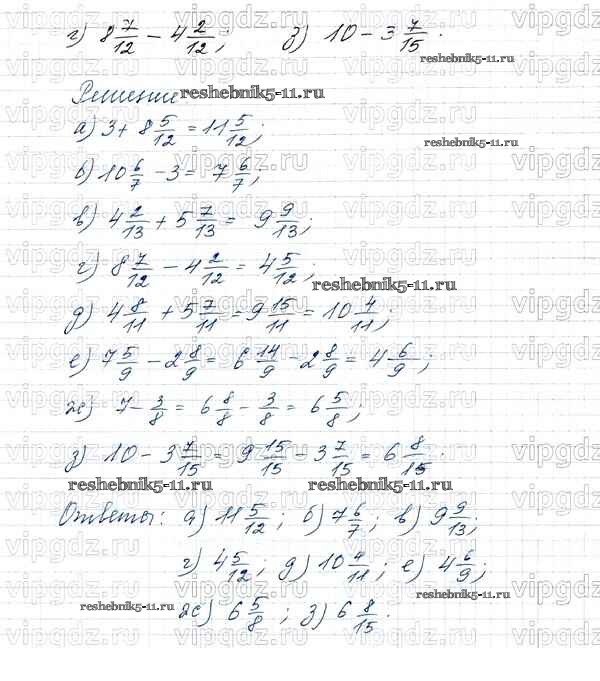 г) 8 7/12 - 4 2/12; з) 10 - 3 7/15.
reshebnik5-11.ru
Решение
reshebnik5-11.ru
а) 3 + 8 5/12 = 11 5/12;
reshebnik5-11.ru
б) 10 6/7 - 3 = 7 6/7;
в) 4 2/13 + 5 7/13 = 9 9/13;
г) 8 7/12 - 4 2/12 = 4 5/12;
reshebnik5-11.ru
д) 4 8/11 + 5 7/11 = 9 15/11 = 10 4/11;
е) 7 5/9 - 2 8/9 = 6 14/9 - 2 8/9 = 4 6/9;
ж) 7 - 3/8 = 6 8/8 - 3/8 = 6 5/8;
з) 10 - 3 7/15 = 9 15/15 - 3 7/15 = 6 8/15.
reshebnik5-11.ru reshebnik5-11.ru
Ответы: а) 11 5/12; б) 7 6/7; в) 9 9/13;
г) 4 5/12; д) 10 4/11; е) 4 6/9;
reshebnik5-11.ru
reshebnik5-11.ru
ж) 6 5/8; з) 6 8/15.
vipgdz.ru